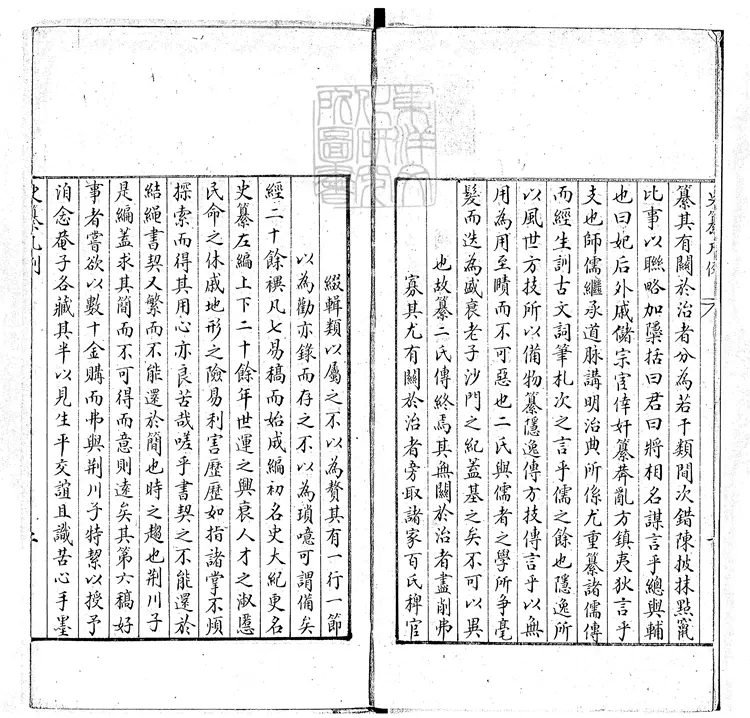 纂其有關於治者分為若干類間次錯陳披抹點竄
比事以聯略加檃括曰君曰將相名謀言乎總與輔
也曰妃后外戚儲宗宦倖奸纂莽亂方鎮夷狄言乎
支也師儒繼承道脉講明治典所係尤重纂諸儒傳
而經生訓古文詞筆札次之言乎儒之餘也隱逸所
以風世方技所以備物纂隱逸傳方技傳言乎以無
用為用至賾而不可惡也二氏與儒者之學所爭毫
髮而迭為盛衰老子沙門之紀蓋基之矣不可以異
也故纂二氏傳終焉其無關於治者盡削弗
寡其尤有關於治者旁取諸家百氏稗官
綴輯類以屬之不以為贅其有一行一節
以為勸亦錄而存之不以為瑣噫可謂備矣
經二十餘禩凡七易稿而始成編初名史大紀更名
史纂左編上下二十餘年世運之興衰人才之淑慝
民命之休戚地形之險易利害歷歷如指諸掌不煩
探索而得其用心亦良苦哉嗟乎書契之不能還於
結繩書契又繁而不能還於簡也時之趨也荆川子
是編蓋求其簡而不可得而意則遠矣其第六稿好
事者嘗欲以數十金購而弗與荆川子特絜以授予
洎念菴子各藏其半以見生平交誼且識苦心手墨
史纂凡例